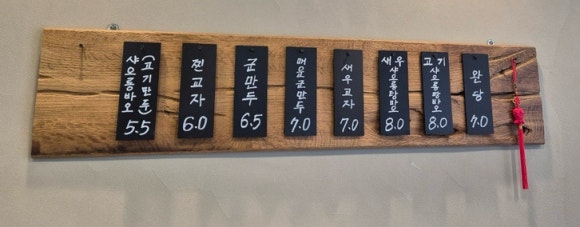 (고기만두)
샤오롱바오
5.5
찐교자
6.0
군만두
6.5
매운군만두
7.0
새우교자
7.0
새우
샤오롱탕바오
8.0
고기
샤오롱탕바오
8.0
완당
7.0